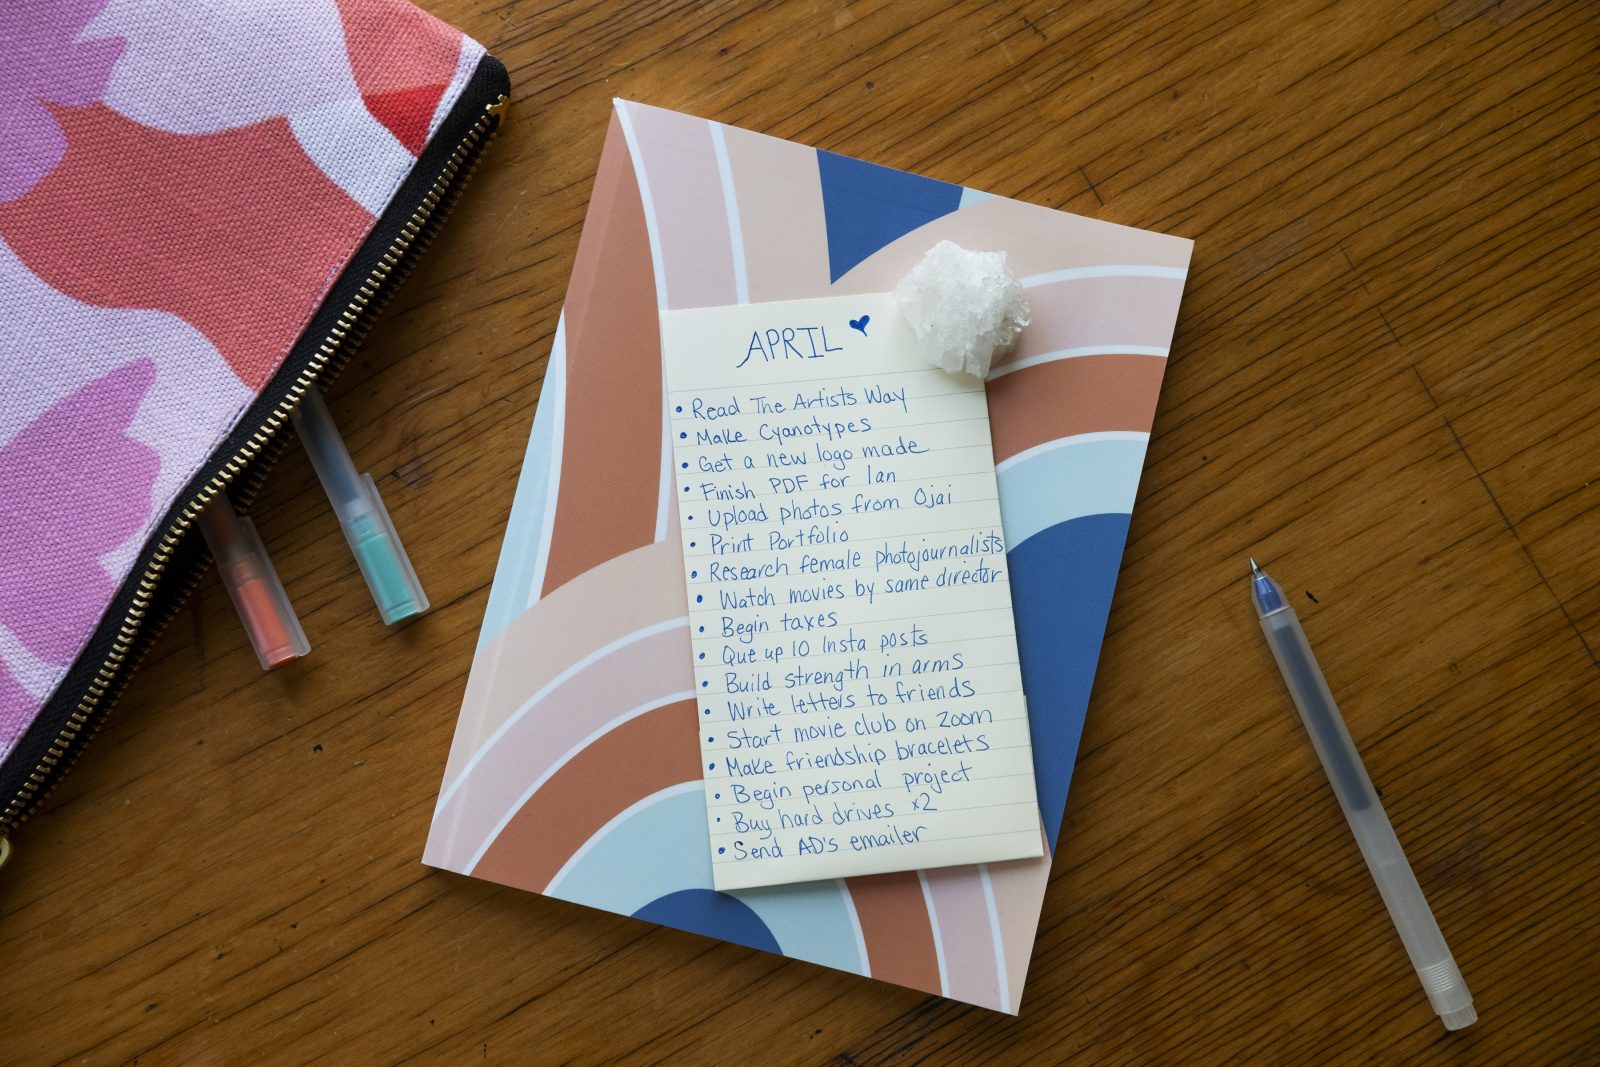 APRIL
• Read The Artists Way
• Make Cyanotypes
• Get a new logo made
• Finish PDF for Ian
• Upload photos from Ojai
• Print Portfolio
• Research female photojournalists
• Watch movies by same director
• Begin taxes
• Que up 10 Insta posts
• Build strength in arms
• Write letters to friends
• Start movie club on Zoom
• Make friendship bracelets
• Begin personal project
• Buy hard drives x2
• Send AD's emailer